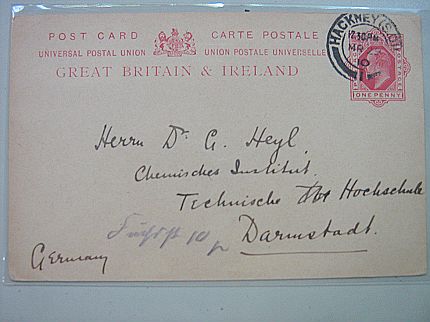 POST CARD CARTE POSTALE
UNIVERSAL POSTAL UNION UNION POSTALE UNIVERSELLE
GREAT BRITAIN & IRELAND
HACKNEY
12.30PM
MR
10
11
POSTAGE
ONE PENNY
Herrn Dr. G. Heyl.
Chemisches Institut.
Technische Hochschule
10
Darmstadt.
Germany